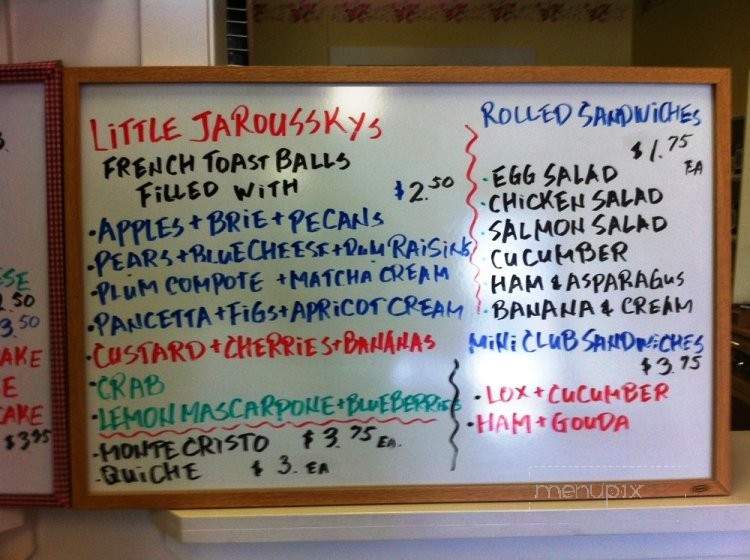 LITTLE JAROUSSKYS
FRENCH TOAST BALLS
FILLED WITH
$2.50
·APPLES+BRIE+PECANS
·PEARS+BLUECHEESE+RUM RAISINS
·PLUM COMPOTE +MATCHA CREAM
·PANCETTA+FIGS+APRICOT CREAM
·CUSTARD+CHERRIES+BANANAS
·CRAB
·LEMON MASCARPONE+BLUEBERRIES
·MONTE CRISTO $3.75 EA.
·QUICHE $3. EA
ROLLED SANDWICHES
$1.75
EA
·EGG SALAD
·CHICKEN SALAD
·SALMON SALAD
·CUCUMBER
·HAM & ASPARAGUS
·BANANA & CREAM
MINI CLUB SANDWICHES
$3.95
·LOX+CUCUMBER
·HAM+GOUDA
3.50
AKE
E
CAKE
$3.95
menupix